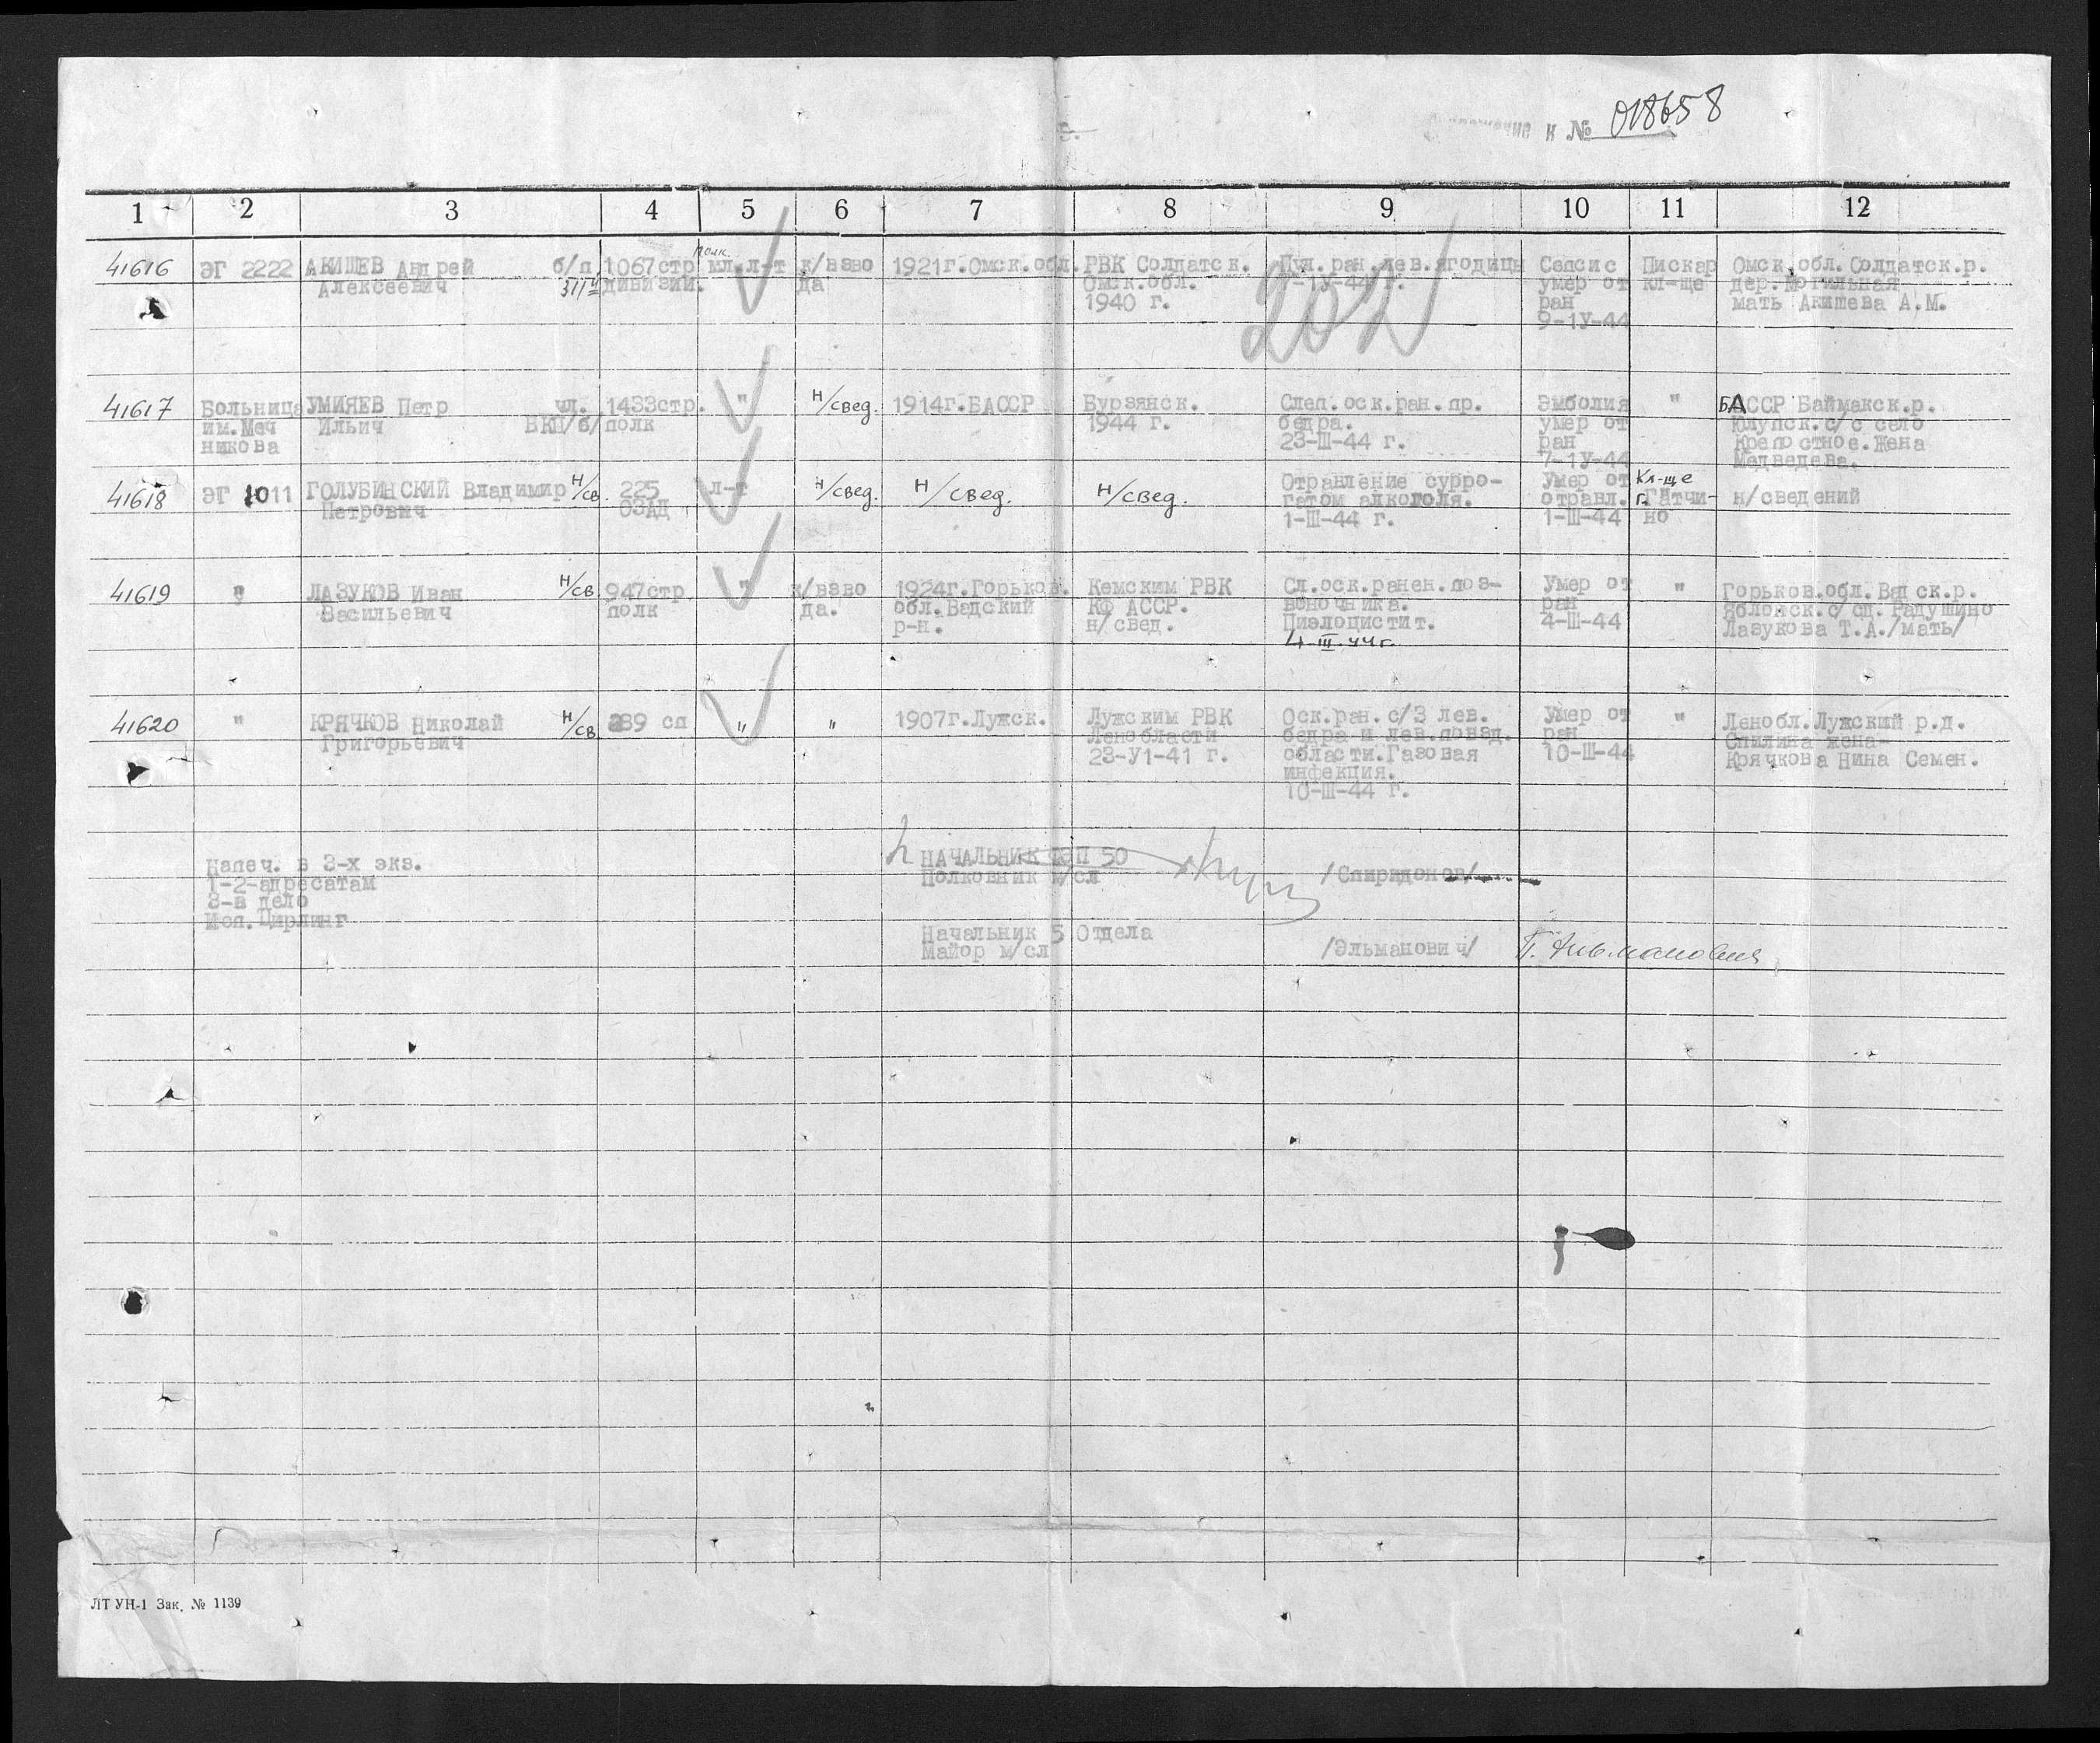 к № 018658
1 2 3 4 5 6 7 8 9 10 11 12
41616 ЭГ 2222 АКИШЕВ Андрей б/п 1067стр полк. мл.л-т к/взво 1921г.Омск.обл. РВК Солдатск. Пул.ран.лев.ягодицы Сепсис Пискар Омск.обл.Солдатск.р.
Алексеевич дивизии. да Омск.обл. умер от кл-ще дер.Могильная
1940 г. ран мать Акишева А.М.
9-1У-44
202
41617 Больница УМИЯЕВ Петр чл. 1433стр. " Н/свед. 1914г.БАССР Бурзянск. Слеп.оск.ран.пр. Эмболия " БАССР Баймакск.р.
им.Меч Ильич ВКП/б/ полк 1944 г. бедра. умер от с/с село
никова 23-III-44 г. ран Крепостное.Жена
7-1У-44 Медведева.
41618 ЭГ 1011 ГОЛУБИНСКИЙ Владимир Н/св. 225 л-т Н/свед. Н/свед. Н/свед. Отравление сурро- Умер от Кл-ще н/сведений
Петрович ОЗАД гатом алкоголя. отравл. г.Гатчи-
1-III-44 г. 1-III-44 но
41619 " ЛАЗУКОВ Иван Н/св 947стр. " к/взво 1924г.Горьков. Кемским РВК Сл.оск.ранен.поз- Умер от " Горьков.обл.Вадск.р.
Васильевич полк да. обл.Вадский КФ АССР. воночника. ран Яблонск.с/сд. Радушино
р-н. н/свед. Пиэлоцистит. 4-III-44 Лазукова Т.А./мать/
4-III.44г.
41620 " КРЯЧКОВ Николай Н/св 289 сп " " 1907г.Лужск. Лужским РВК Оск.ран.с/3 лев. Умер от " Ленобл.Лужский р.д.
Григорьевич Ленобласти бедра и лев.понад. ран Спилина жена-
23-У1-41 г. области.Газовая 10-III-44 Крячкова Нина Семен.
инфекция.
10-III-44 г.
Напеч. в 3-х экз.
1-2-адресатам
3-в дело
Исп.Цирлинг
НАЧАЛЬНИК ФЭП 50
Полковник м/сл /Спиридонов/
Начальник 5 Отдела
Майор м/сл /Эльманович/
ЛТ УН-1 Зак. № 1139